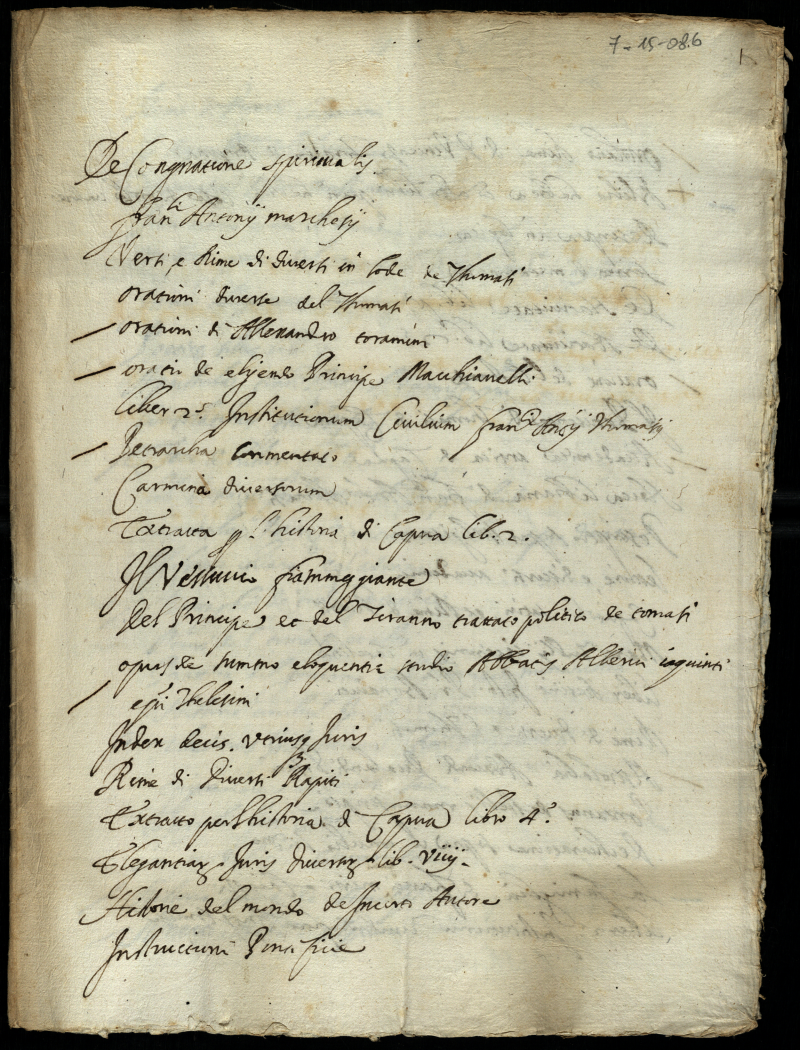 7-15-086
1
De Congnatione spiritualis.
fran.ci Antonij marchesij
Versi, e Rime di diversi in lode de Thomasi
orationi diverse del Thomasi
orationi di Allexandro toramini
oratii de eligendo Principe Macchiavelli
liber 2.s Institutionum Civilium fran.ci Ant.ij Thomasij
Petrarcha Commentato
Carmina diversorum
Extratta p l'historia di Capua lib. 2.
Il Vessuvio fiammeggiante
Del Principe et del Tiranno trattato politico de tomasi
opus de summo eloquentiæ studio Abbatis Alberici
ep.i Thelesini
Index decis. utriusq Juris
Rime di Diversi Rapiti
Extratto per l'historia di Capua libro 4.o
Elegantiar Juris diversar lib. viiij.
Historie del mondo de Incerto Autore
Instructioni Pontificie